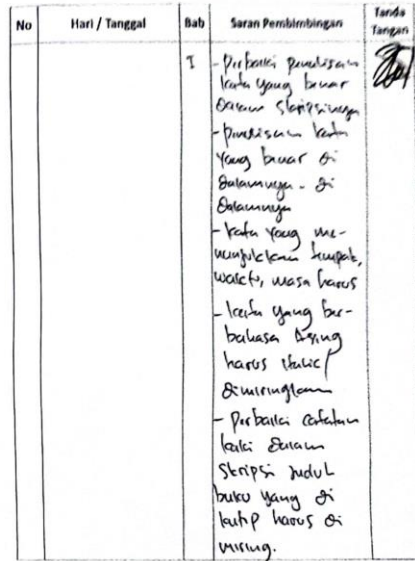 No Hari / Tanggal Bab Saran Pembimbingan Tanda Tangan
I - Perbaiki penulisan
kata yang benar
dalam Skripsinya
- penulisan kata
yang benar di
dalamnya - di
dalamnya
- kata yang me-
nunjukkan tempat,
waktu, masa harus
- kata yang ber-
bahasa Asing
harus italic/
dimiringkan
- Perbaiki catatan
kaki dalam
Skripsi judul
buku yang di
kutip harus di
miring.